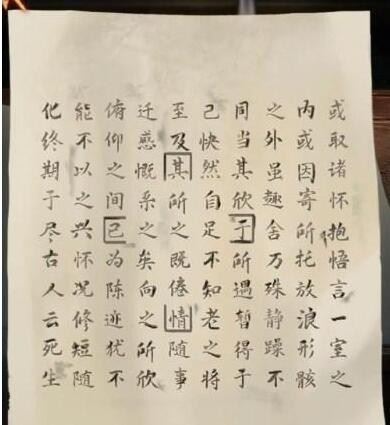 或取诸怀抱悟言一室之
内或因寄所托放浪形骸
之外虽趣舍万殊静躁不
同当其欣于所遇暂得于
己快然自足不知老之将
至及其所之既倦情随事
迁感慨系之矣向之所欣
俯仰之间已为陈迹犹不
能不以之兴怀况修短随
化终期于尽古人云死生